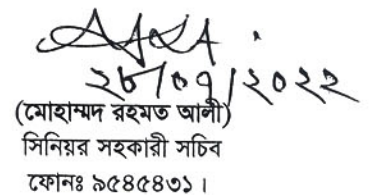 ২৮/০৭/২০২২
(মোহাম্মদ রহমত আলী)
সিনিয়র সহকারী সচিব
ফোনঃ ৯৫৪৫৪৩১।